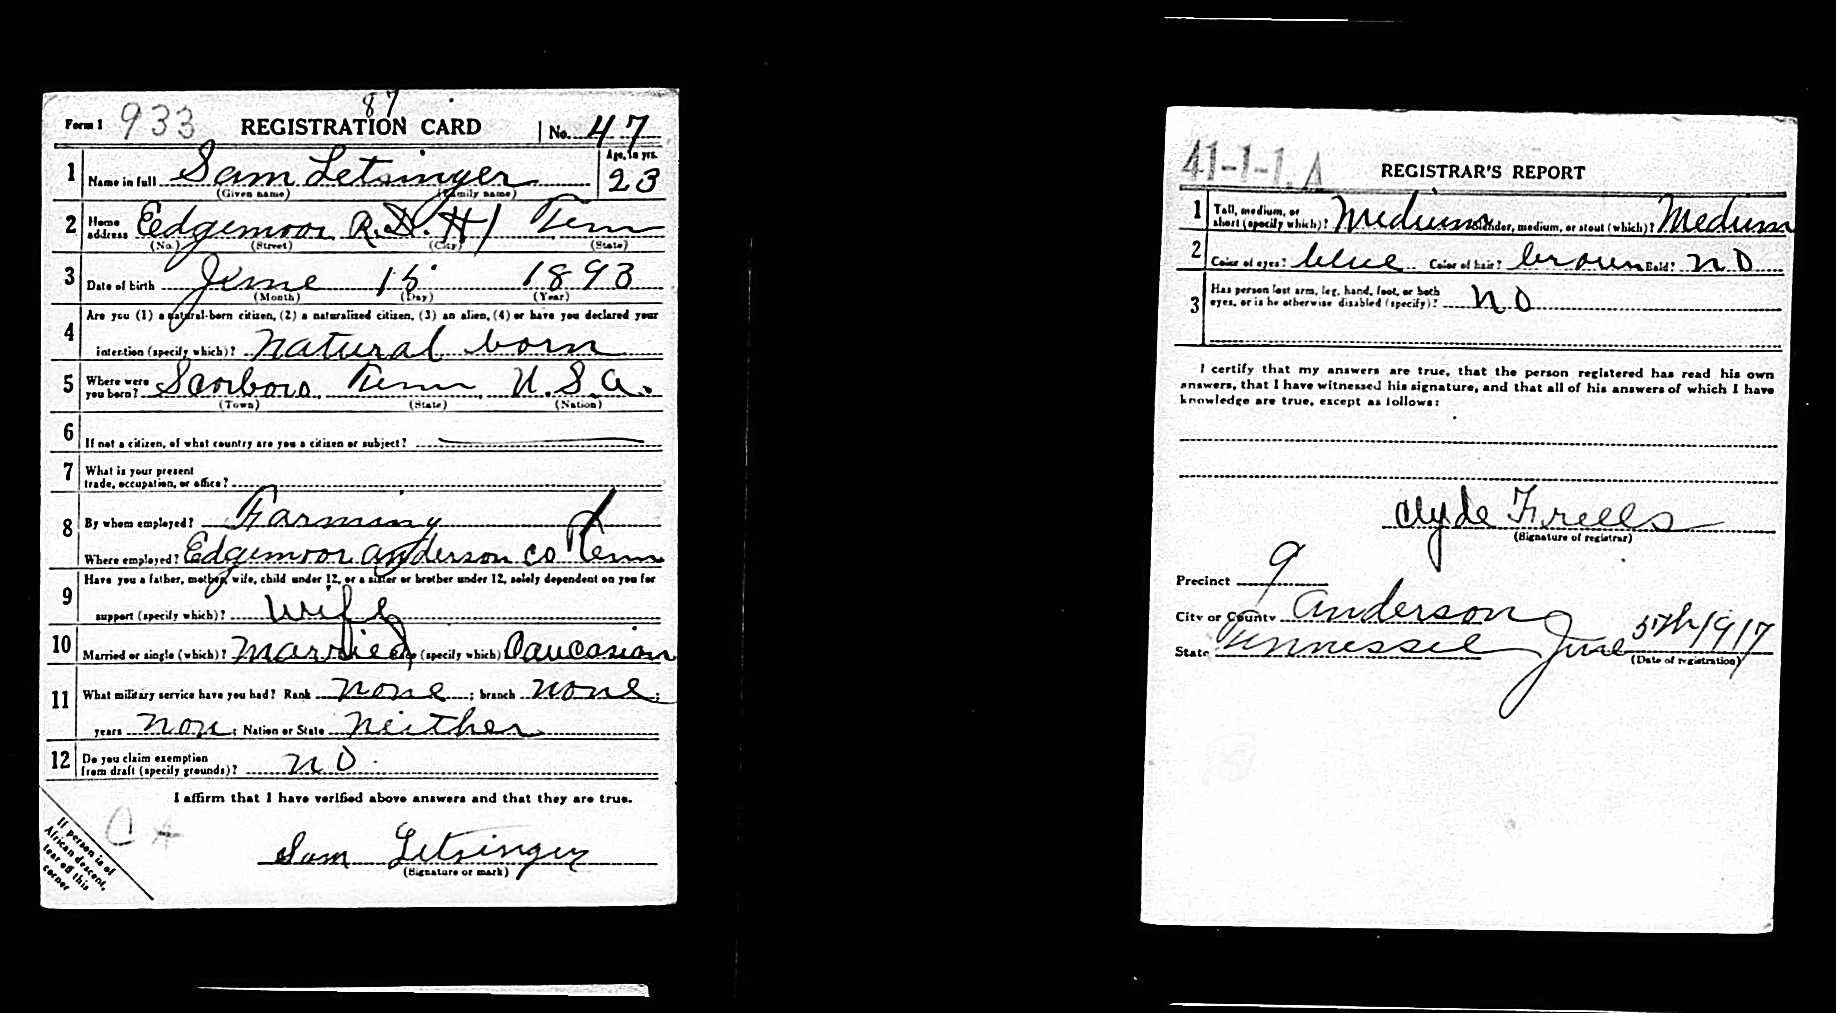 87
Form 1 933 REGISTRATION CARD No. 47
1 Name in full Sam Letsinger Age, in yrs. 23
(Given name) (Family name)
2 Home address Edgemoor R.D. #1 Tenn
(No.) (Street) (City) (State)
3 Date of birth June 15 1893
(Month) (Day) (Year)
4 Are you (1) a natural-born citizen, (2) a naturalized citizen, (3) an alien, (4) or have you declared your
intention (specify which)? natural born
5 Where were you born? Scarboro Tenn U.S.A.
(Town) (State) (Nation)
6 If not a citizen, of what country are you a citizen or subject?
7 What is your present
trade, occupation, or office?
8 By whom employed? Farming
Where employed? Edgemoor Anderson Co Tenn
9 Have you a father, mother, wife, child under 12, or a sister or brother under 12, solely dependent on you for
support (specify which)? wife
10 Married or single (which)? Married Race (specify which) Caucasian
11 What military service have you had? Rank none ; branch none ;
years non ; Nation or State Neither
12 Do you claim exemption
from draft (specify grounds)? no
I affirm that I have verified above answers and that they are true.
Sam Letsinger
(Signature or mark)
If person is of
African descent,
tear off this
corner
41-1-1. A REGISTRAR'S REPORT
1 Tall, medium, or
short (specify which)? Medium Slender, medium, or stout (which)? Medium
2 Color of eyes? blue Color of hair? brown Bald? no
3 Has person lost arm, leg, hand, foot, or both
eyes, or is he otherwise disabled (specify)? no
I certify that my answers are true, that the person registered has read his own
answers, that I have witnessed his signature, and that all of his answers of which I have
knowledge are true, except as follows:
Clyde Freels
(Signature of registrar)
Precinct 9
City or County Anderson
State Tennessee June 5th 1917
(Date of registration)